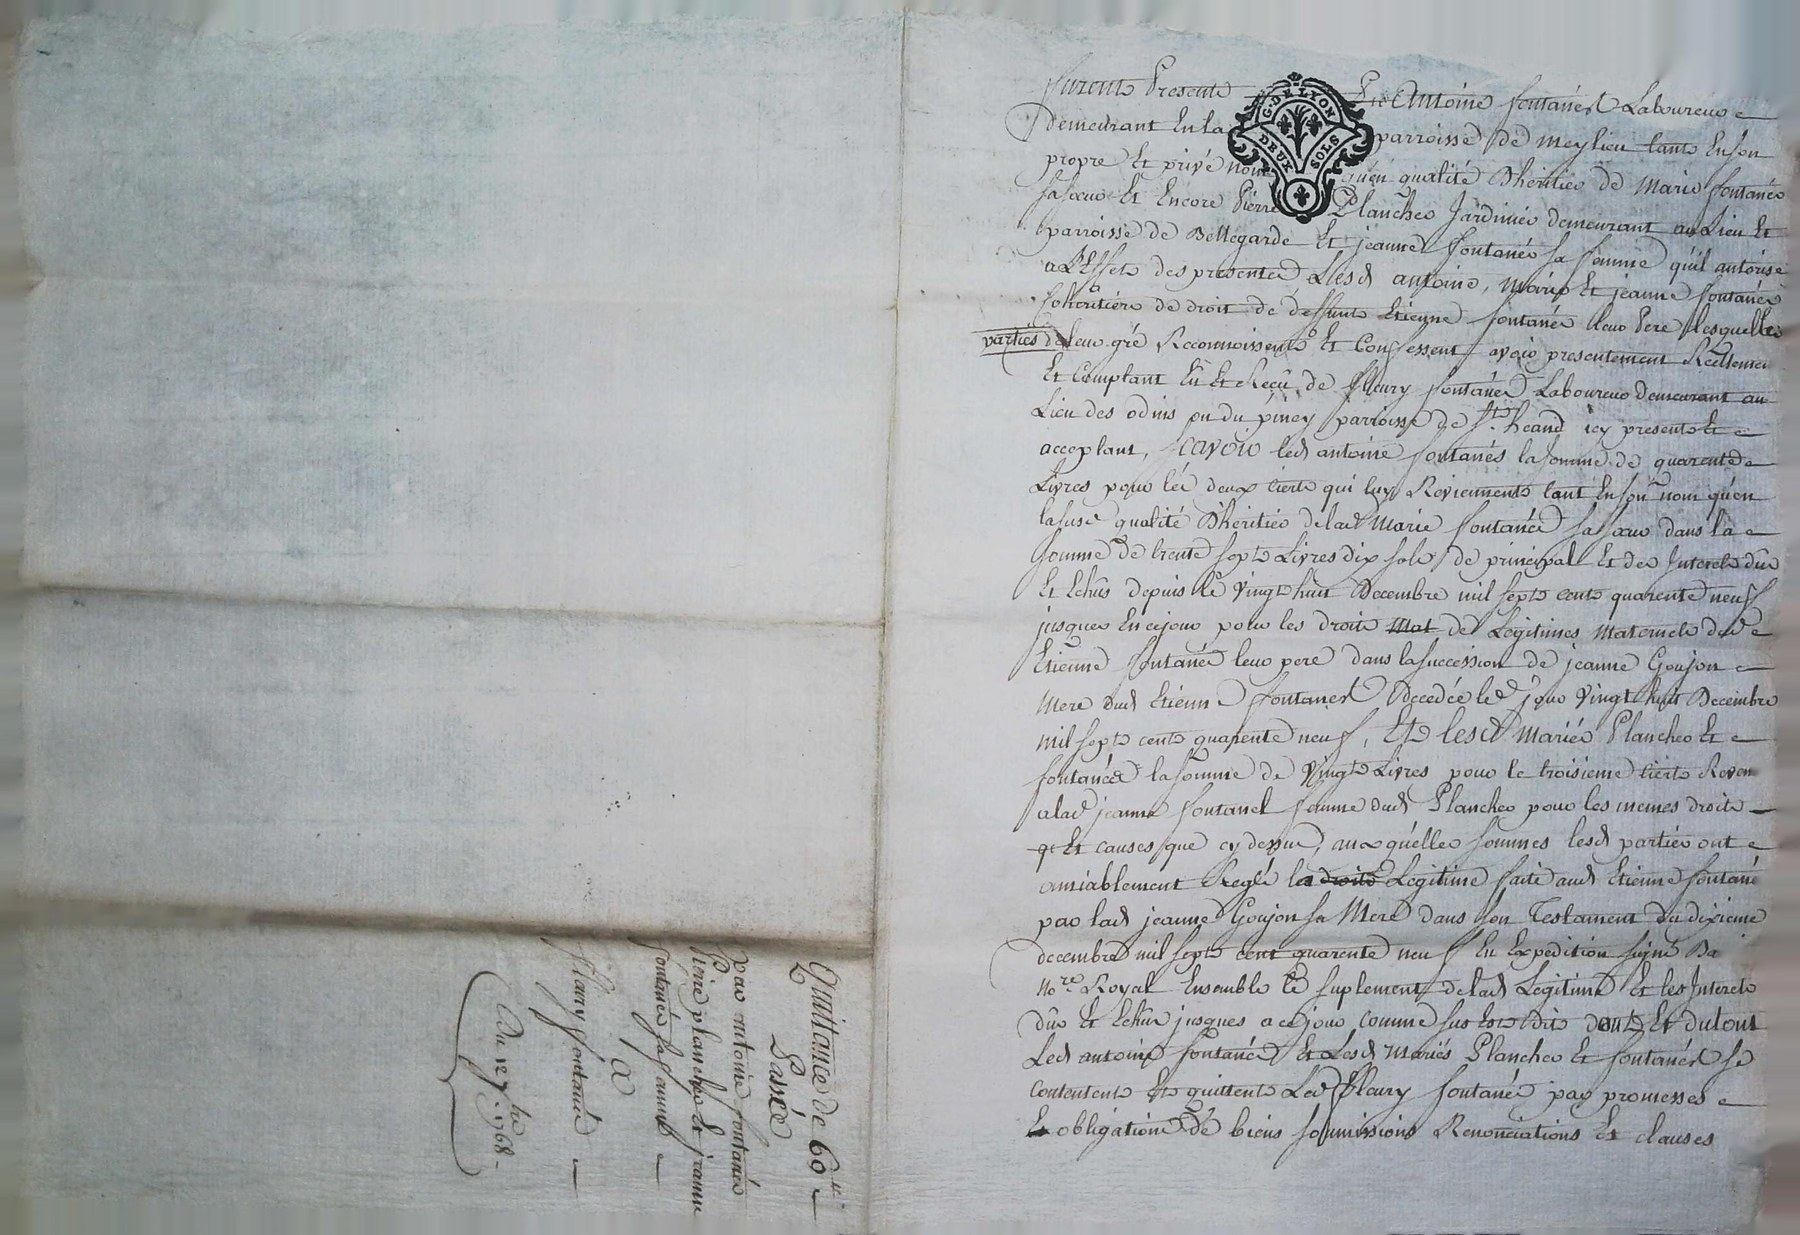 furent Presents Sr Antoine fontanés Laboureur
G. DE LYON
DEUX SOLS
demeurant En la parroisse de meylieu tant En son
propre Et privé nom qu'en qualité D'héritier de Marie fontanés
sa sœur Et Encore Pierre Plancher Jardinier demeurant au Lieu Et
parroisse de Bellegarde Et jeanne fontanés sa femme qu'il autorise
a L'Effet des presentes Lesd antoine, Marie Et jeanne fontanés
Cohéritiers de droit de deffunt Etienne fontanés leur Pere lesquelles
parties de leur gré Reconnoissent Et Confessent avoir presentement Reellement
Et Comptant Eû Et Reçû de fleury fontanés Laboureur demeurant au
Lieu des odins ou du piney parroisse de St. heand icy present Et
acceptant, Scavoir led antoine fontanés la somme de quarente
Livres pour les deux tierts qui luy Reviennent tant En son nom qu'en
la susd qualité D'héritier de lad Marie fontanés sa sœur dans la
Somme de trente sept Livres dix sols de principal Et des Interets dûs
Et Echûs depuis le vingt huit Decembre mil sept cent quarente neuf
jusques En ce jour pour les droits Mat de Legitimes Maternels dud
Etienne fontanés leur pere dans la succession de jeanne Goujon
Mere dud Etienne fontanés Decedée led jour vingt huit Decembre
mil sept cent quarente neuf, Et lesd mariés Plancher Et
fontanés la somme de vingt Livres pour le troisieme tiert Reven
a lad jeanne fontanel femme dud Plancher pour les memes droits
qe Et causes que cy dessus, aux quelles sommes lesd parties ont
amiablement Reglé la droits Legitime faite aud Etienne fontané
par lad jeanne Goujon sa Mere dans son Testament du dixieme
decembre mil sept cent quarente neuf En Expedition signé
Nore Royal Ensemble le suplement de lad Legitime Et les Interets
dûs Et Echûs jusques a ce jour comme sus Est Dit dont Et du tout
Led antoine fontanés Et Lesd Mariés Plancher Et fontanés se
contentent Et quittent Led fleury fontanés par promesses
Et obligations de biens soumissions Renonciations Et clauses
Quittance de 60 tt
Passée
par antoine fontanés
Pierre plancher Et jeanne
fontanés sa femme
a
fleury fontanés
Du 12 7bre 1768